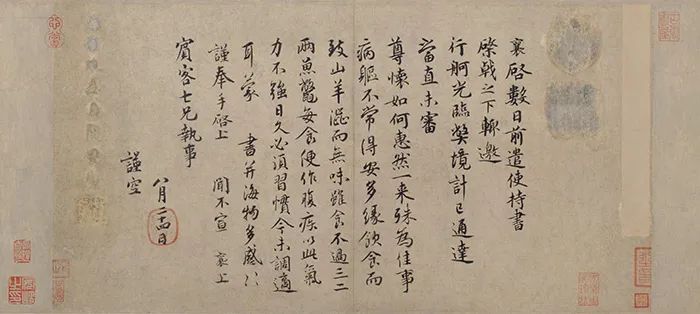 襄啓數日前遣使持書
棨戟之下輒邀
行舸光臨弊境計已通達
當直未審
尊懷如何惠然一来殊為佳事
病軀不常得安多緣飲食而
致山羊澀而無味雖食不過三二
兩魚鼈每食便作腹疾以此氣
力不強日久必須習慣今未調適
耳蒙 書并海物多感〻
謹奉手啓上 聞不宣 襄上
賓客七兄執事
八月二十四日
謹空